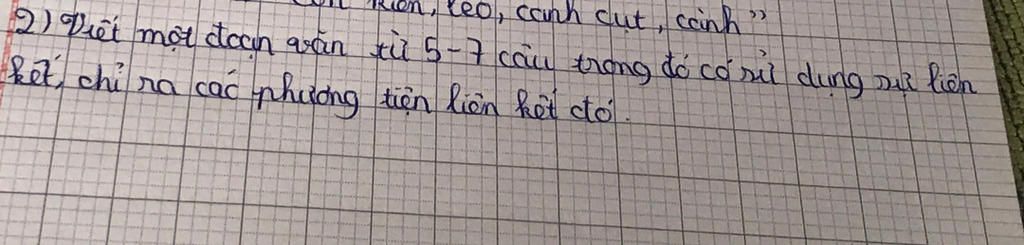 kiến, leo, cành cụt, cành"
2) Viết một đoạn văn từ 5-7 câu trong đó có sử dụng sự liên
kết, chỉ ra các phương tiện liên kết đó.